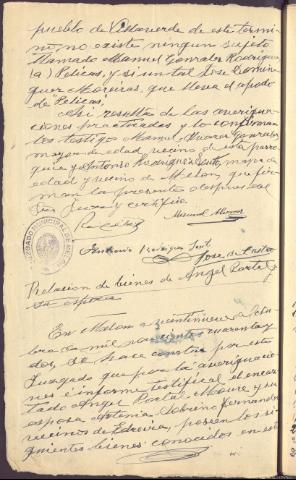 pueblo de Villaverde de este termi
no, no existe ningun sujeto
llamado Manuel Gonzalez Rodriguez
(a) Pelicas, y si un tal Jose Domin
guez Moreiras, que lleva el apodo
de Pelicas,
Asi resulta de las averigua
ciones practicadas y lo confirman
los testigos Manuel Alvarez Gonzalez
mayor de edad, vecino de esta parro
quia y Antonio Rodriguez mayor de
edad y vecino de Melon, que fir
man la presente despues del
Sr. Juez y certifico
Manuel Alvarez
Antonio Rodriguez
Jose de Castro
JUZGADO MUNICIPAL DE MELON
Relacion de bienes de Angel Portal y
su esposa
En Melon a veintinueve de
de mil novecientos cuarenta y
dos, se hace constar por este
Juzgado que por la averiguacio
nes e informe testifical al encar
tado Angel Portal Moure y su
esposa Antonia Sobrino Fernandez
vecinos de poseen los si
guientes bienes conocidos en este